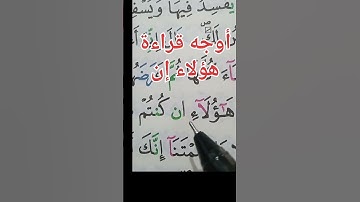 يُفْسِدُ فِيهَا وَيَسْفِ
أوجه قراءة
هؤلاء إن
ثُمَّ عَرَضَهُ
هَٰٓؤُلَآءِ ان كُنتُمْ
مْتَنَآ إِنَّكَ